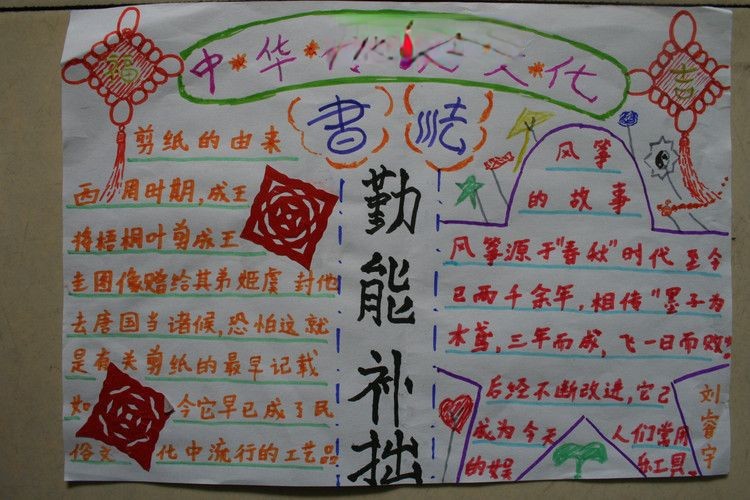 福
中华 化
吉
书法
剪纸的由来
西周时期,成王
将梧桐叶剪成王
圭图像赠给其弟姬虞 封他
去唐国当诸候,恐怕这就
是有关剪纸的最早记载
如 今它早已成了民
俗文 化中流行的工艺品
勤能补拙
风筝
的故事
风筝源于"春秋"时代至今
已两千余年,相传"墨子为
木鸢,三年而成,飞一日而败"
后经不断改进,它已
成为今天 人们常用
的娱 乐工具。
刘睿宇